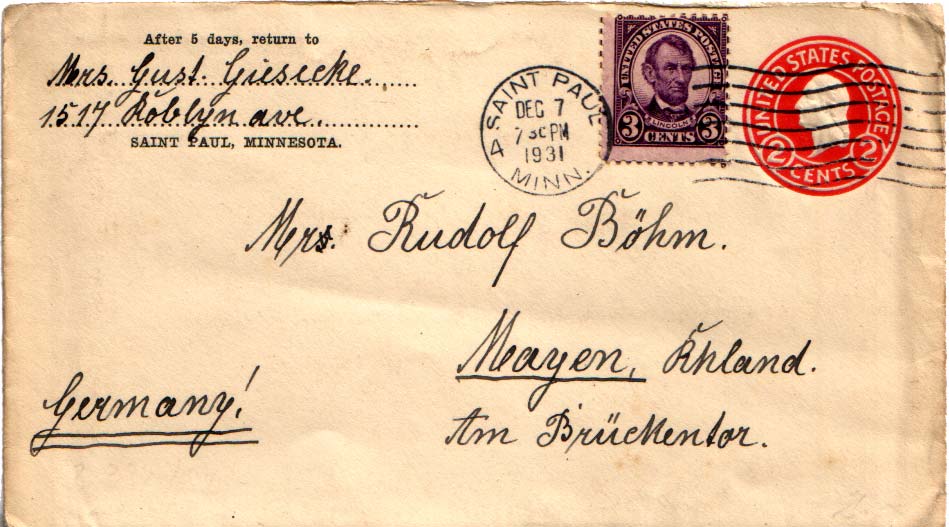 After 5 days, return to
Mrs. Gust. Giesecke.
1517 Roblyn ave.
SAINT PAUL, MINNESOTA.
SAINT PAUL
4
DEC 7
7 30 PM
1931
MINN.
UNITED STATES POSTAGE
LINCOLN
3 CENTS 3
UNITED STATES POSTAGE
2 CENTS 2
Mrs. Rudolf Böhm.
Mayen, Rhland.
Am Brückentor.
Germany!